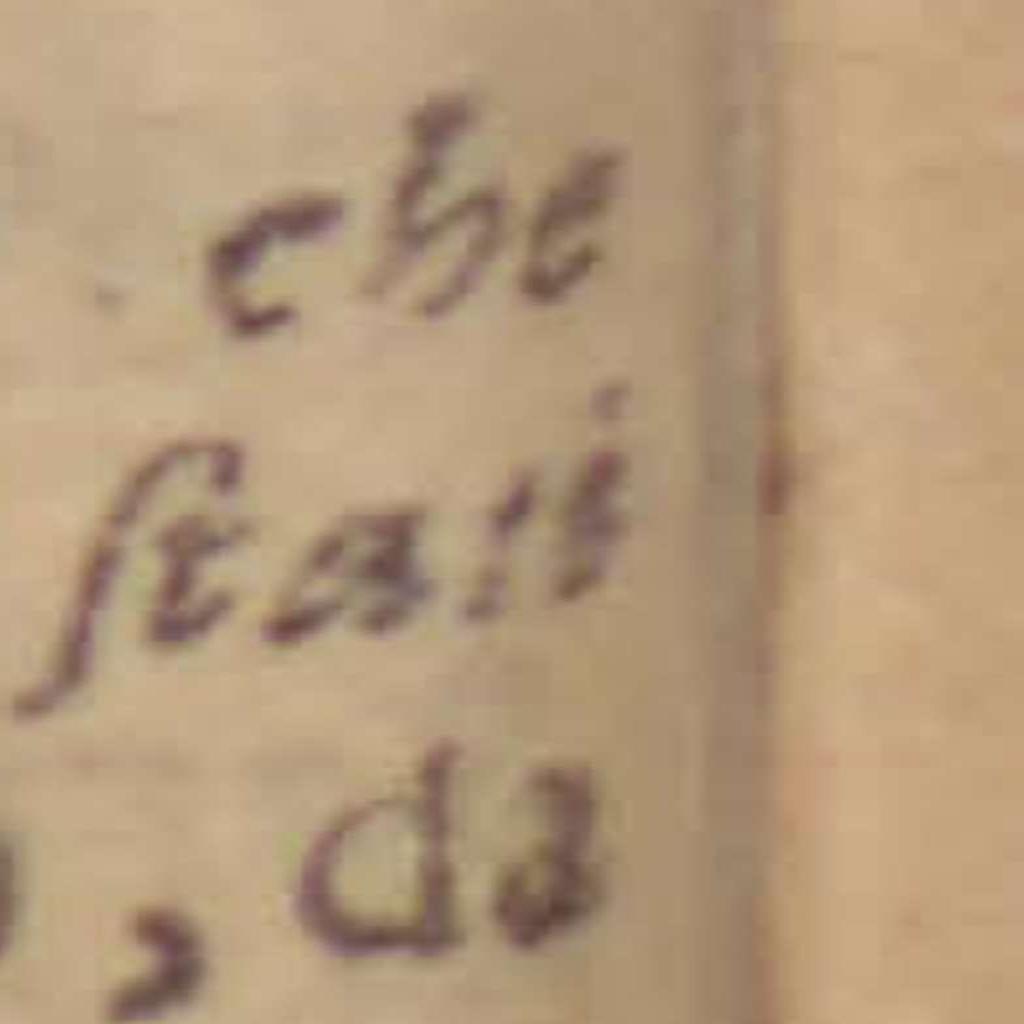 che
ſtari
, da